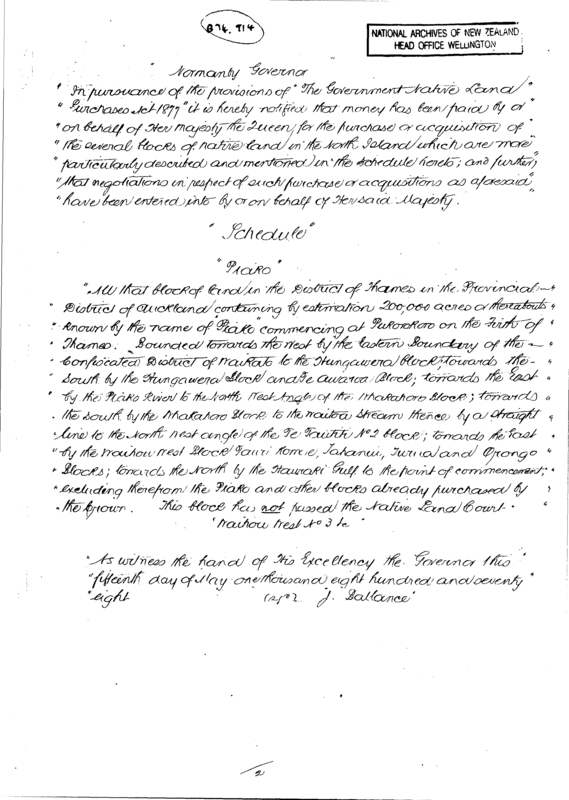 874.914
NATIONAL ARCHIVES OF NEW ZEALAND
HEAD OFFICE WELLINGTON
" Normanby Governor
" In pursuance of the provisions of "The Government Native Land "
" Purchases Act 1877" it is hereby notified that money has been paid by or "
" on behalf of Her Majesty the Queen, for the purchase or acquisition of "
" the several blocks of native land in the North Island which are more "
" particularly described and mentioned in the Schedule hereto; and further, "
" that negotiations in respect of such purchase or acquisitions as aforesaid "
" have been entered into by or on behalf of Her said Majesty.
" Schedule "
" Piako "
" All that block of land in the District of Thames in the Provincial
" District of Auckland containing by estimation 200,000 acres or thereabouts "
" known by the name of Piako commencing at Pukorokoro on the Firth of "
" Thames. Bounded towards the West by the Eastern Boundary of the "
" Confiscated District of Waikato to the Hungawera Block; towards the
" South by the Hungawera Block and Te Awaroa Block; towards the East
" by the Piako River to the North West Angle of the Makahoro Block; towards "
" the South by the Makahoro Block to the Waitoa Stream thence by a straight "
" line to the North West angle of the Te No 2 block; towards the East
" by the Waihou West Block Tauri Komie, Turua and Orongo "
" Blocks; towards the North by the Hauraki Gulf to the point of commencement; "
" excluding therefrom the Piako and other blocks already purchased by "
" the Crown. This block has not passed the Native Land Court. "
" Waihou West No 3 &c "
" As witness the hand of His Excellency the Governor this "
" fifteenth day of May one thousand eight hundred and seventy "
" eight J. Ballance "
2